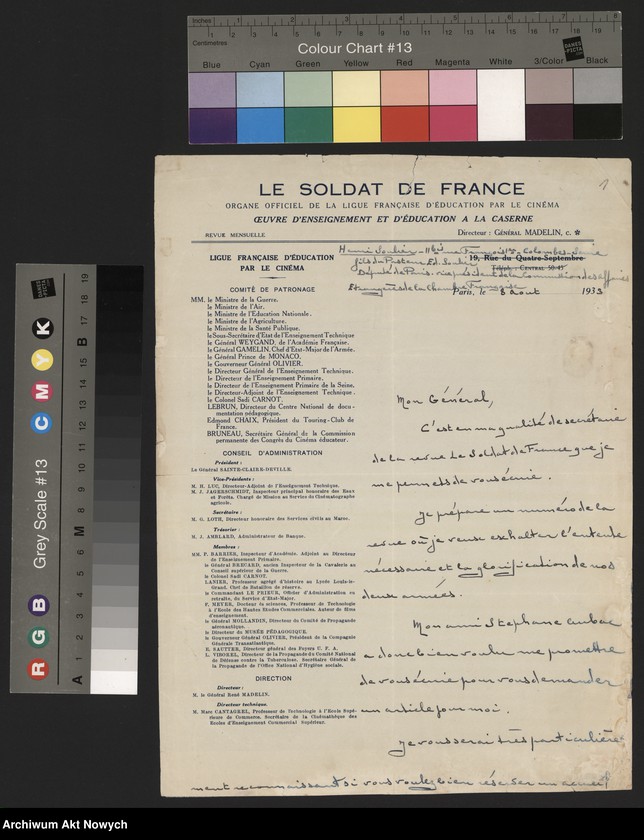 Inches 1 2 3 4 5 6 7 8
Centimetres 1 2 3 4 5 6 7 8 9 10 11 12 13 14 15 16 17 18 19
Colour Chart #13
DANES
PICTA
.COM
Blue Cyan Green Yellow Red Magenta White 3/Color Black
Grey Scale #13
R G B C M Y K
A 1 2 3 4 5 6 M 8 9 10 11 12 13 14 15 B 17 18 19
1
LE SOLDAT DE FRANCE
ORGANE OFFICIEL DE LA LIGUE FRANÇAISE D'ÉDUCATION PAR LE CINÉMA
ŒUVRE D'ENSEIGNEMENT ET D'ÉDUCATION A LA CASERNE
REVUE MENSUELLE
Directeur : GÉNÉRAL MADELIN, C. ✻
Henri Soulier - 11 bis rue François Ier - Colombes - Seine
fils du Pasteur Ed. Soulier
Député de Paris, vice président de la Commission des affaires
Etrangères de la Chambre Française
19, Rue du Quatre-Septembre
Téléph. : CENTRAL 50-43
Paris, le 8 août 1933
LIGUE FRANÇAISE D'ÉDUCATION
PAR LE CINÉMA
COMITÉ DE PATRONAGE
MM. le Ministre de la Guerre.
le Ministre de l'Air.
le Ministre de l'Education Nationale.
le Ministre de l'Agriculture.
le Ministre de la Santé Publique.
le Sous-Secrétaire d'Etat de l'Enseignement Technique
le Général WEYGAND, de l'Académie Française.
le Général GAMELIN, Chef d'Etat-Major de l'Armée.
le Général Prince de MONACO.
le Gouverneur Général OLIVIER.
le Directeur Général de l'Enseignement Technique.
le Directeur de l'Enseignement Primaire.
le Directeur de l'Enseignement Primaire de la Seine.
le Directeur-Adjoint de l'Enseignement Technique.
le Colonel Sadi CARNOT.
LEBRUN, Directeur du Centre National de documentation pédagogique.
Edmond CHAIX, Président du Touring-Club de
France.
BRUNEAU, Secrétaire Général de la Commission
permanente des Congrès du Cinéma éducateur.
CONSEIL D'ADMINISTRATION
Président :
Le Général SAINTE-CLAIRE-DEVILLE.
Vice-Présidents :
M. H. LUC, Directeur-Adjoint de l'Enseignement Technique.
M. J. JAGERSCHMIDT, Inspecteur principal honoraire des Eaux
et Forêts. Chargé de Mission au Service du Cinématographe
agricole.
Secrétaire :
M. G. LOTH, Directeur honoraire des Services civils au Maroc.
Trésorier :
M. J. AMBLARD, Administrateur de Banque.
Membres :
MM. P. BARRIER, Inspecteur d'Académie. Adjoint au Directeur
de l'Enseignement Primaire.
le Général BRECARD, ancien Inspecteur de la Cavalerie au
Conseil supérieur de la Guerre.
le Colonel Sadi CARNOT.
LANIER, Professeur agrégé d'histoire au Lycée Louis-le-
Grand, Chef de Bataillon de réserve.
le Commandant LE PRIEUR, Officier d'Administration en
retraite, du Service d'Etat-Major.
F. MEYER, Docteur ès sciences, Professeur de Technologie
à l'Ecole des Hautes Etudes Commerciales. Auteur de films
d'enseignement.
le Général MOLLANDIN, Directeur du Comité de Propagande
aéronautique.
le Directeur du MUSÉE PÉDAGOGIQUE.
le Gouverneur Général OLIVIER, Président de la Compagnie
Générale Transatlantique.
E. SAUTTER, Directeur général des Foyers U. F. A.
L. VIBOREL, Directeur de la Propagande du Comité National
de Défense contre la Tuberculose. Secrétaire Général de
la Propagande de l'Office National d'Hygiène sociale.
DIRECTION
Directeur :
M. le Général René MADELIN.
Directeur technique.
M. Marc CANTAGREL, Professeur de Technologie à l'Ecole Supérieure
de Commerce. Secrétaire de la Cinémathèque des
Ecoles d'Enseignement Commercial Supérieur.
Mon Général,
C'est en ma qualité de secrétaire
de la revue Le Soldat de France que je
me permets de vous écrire.
Je prépare un numéro de la
revue où je veux exhalter l'entente
nécessaire et la glorification de nos
deux armées.
Mon ami Stéphane Aubac
a donc bien voulu me promettre
de vous écrire pour vous demander
un article pour moi.
Je vous serai très particulière-
ment reconnaissant si vous voulez bien réserver un accueil
Archiwum Akt Nowych